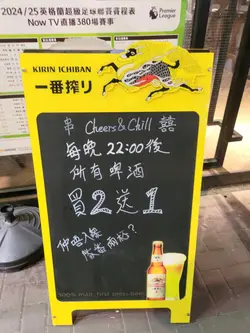 2024/25英格蘭超級足球聯賽賽程表
Now TV直播380場賽事
Premier
League
KIRIN ICHIBAN
一番搾り
串 Cheers&Chill 囍
每晚 22:00後
所有啤酒
買2送1
仲唔入嚟